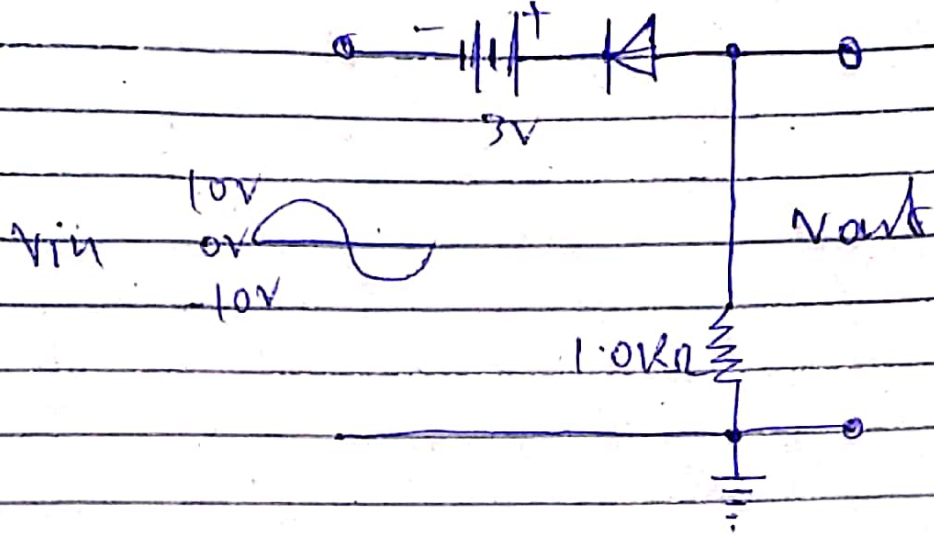 - +
3V
10V
Vin 0V Vout
-10V
1.0KΩ